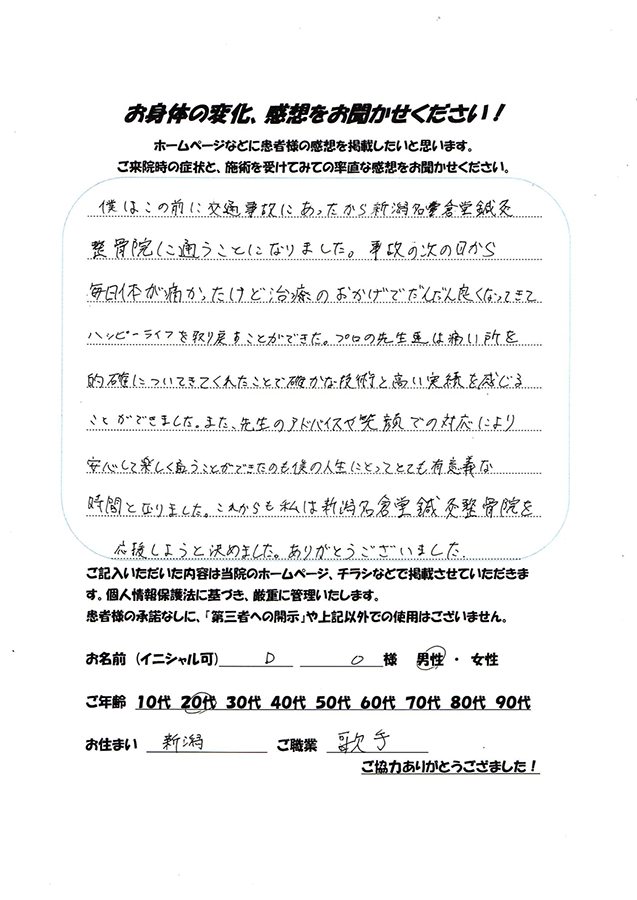 お身体の変化、感想をお聞かせください！
ホームページなどに患者様の感想を掲載したいと思います。
ご来院時の症状と、施術を受けてみての率直な感想をお聞かせください。
僕はこの前に交通事故にあったから新潟名倉堂鍼灸
整骨院に通うことになりました。事故の次の日から
毎日体が痛かったけど治療のおかげでだんだん良くなってきて
ハッピーライフを取り戻すことができた。プロの先生馬は痛い所を
的確についてきてくれたことで確かな技術と高い実績を感じる
ことができました。また、先生のアドバイスや笑顔での対応により
安心して楽しく通うことができたのも僕の人生にとってとても有意義な
時間となりました。これからも私は新潟名倉堂鍼灸整骨院を
応援しようと決めました。ありがとうございました。
ご記入いただいた内容は当院のホームページ、チラシなどで掲載させていただきま
す。個人情報保護法に基づき、厳重に管理いたします。
患者様の承諾なしに、「第三者への開示」や上記以外での使用はございません。
お名前（イニシャル可） D O 様 男性 ・ 女性
ご年齢 10代 20代 30代 40代 50代 60代 70代 80代 90代
お住まい 新潟 ご職業 歌手
ご協力ありがとうござました！